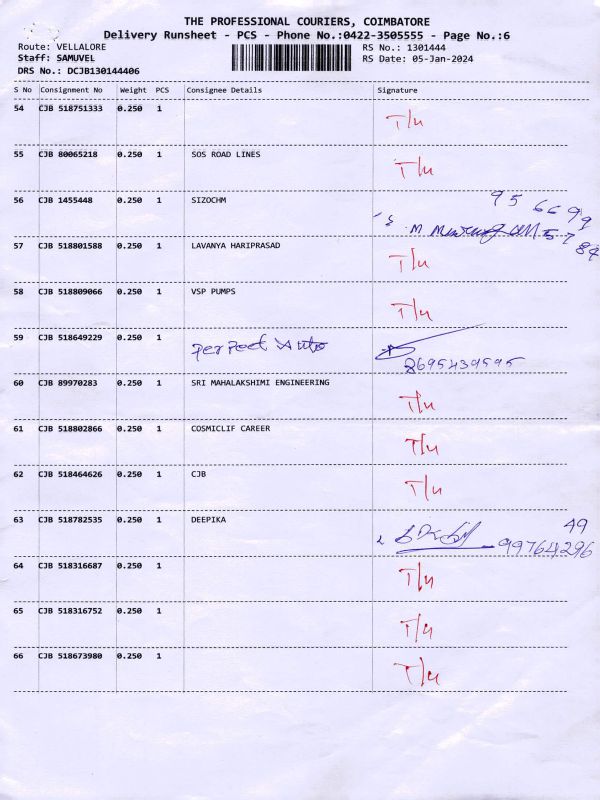 THE PROFESSIONAL COURIERS, COIMBATORE
Delivery Runsheet - PCS - Phone No.:0422-3505555 - Page No.:6
Route: VELLALORE RS No.: 1301444
Staff: SAMUVEL RS Date: 05-Jan-2024
DRS No.: DCJB130144406
S No Consignment No Weight PCS Consignee Details Signature
54 CJB 518751333 0.250 1 T/u
55 CJB 80065218 0.250 1 SOS ROAD LINES T/u
56 CJB 1455448 0.250 1 SIZOCHM
57 CJB 518801588 0.250 1 LAVANYA HARIPRASAD T/u
58 CJB 518809066 0.250 1 VSP PUMPS T/u
59 CJB 518649229 0.250 1 Perfect Auto 8695439595
60 CJB 89970283 0.250 1 SRI MAHALAKSHIMI ENGINEERING T/u
61 CJB 518802866 0.250 1 COSMICLIF CAREER T/u
62 CJB 518464626 0.250 1 CJB T/u
63 CJB 518782535 0.250 1 DEEPIKA 49
99764296
64 CJB 518316687 0.250 1 T/u
65 CJB 518316752 0.250 1 T/u
66 CJB 518673980 0.250 1 T/u